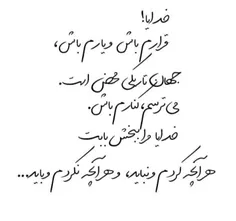 خدایا!
قرارم باش و یارم باش،
جهان تاریکی محض است.
می‌ترسم، کنارم باش.
خدایا مرا ببخش بابت
هر آنچه کردم و نباید، و هر آنچه نکردم و باید...